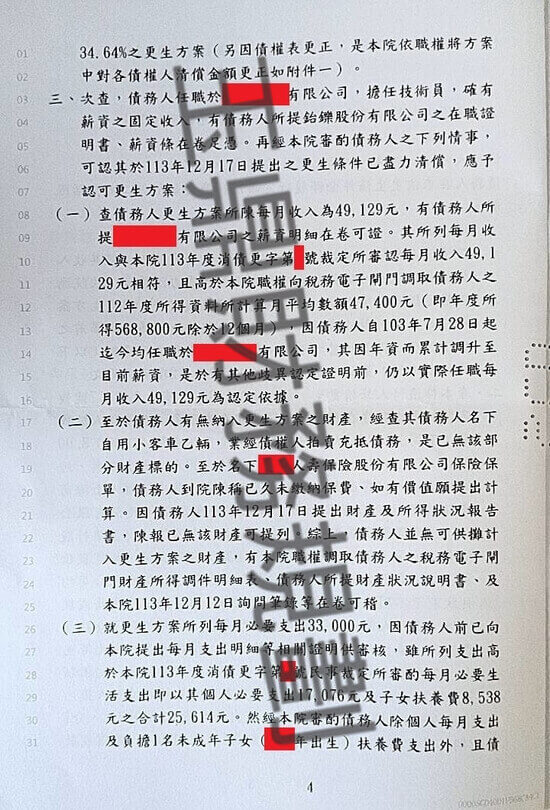 01 34.64%之更生方案（另因債權表更正，是本院依職權將方案
02 中對各債權人清償金額更正如附件一）。
03 三、次查，債務人任職於有限公司，擔任技術員，確有
04 薪資之固定收入，有債務人所提鉛鑠股份有限公司之在職證
05 明書、薪資條在卷足憑。再經本院審酌債務人之下列情事，
06 可認其於113年12月17日提出之更生條件已盡力清償，應予
07 認可更生方案：
08 （一）查債務人更生方案所陳每月收入為49,129元，有債務人所
09 提有限公司之薪資明細在卷可證。其所列每月收
10 入與本院113年度消債更字第號裁定所審認每月收入49,1
11 29元相符，且高於本院職權向稅務電子閘門調取債務人之
12 112年度所得資料所計算月平均數額47,400元（即年度所
13 得568,800元除於12個月），因債務人自103年7月28日起
14 迄今均任職於有限公司，其因年資而累計調升至
15 目前薪資，是於有其他歧異認定證明前，仍以實際任職每
16 月收入49,129元為認定依據。
17 （二）至於債務人有無納入更生方案之財產，經查其債務人名下
18 自用小客車乙輛，業經債權人拍賣充抵債務，是已無該部
19 分財產標的。至於名下人壽保險股份有限公司保險保
20 單，債務人到院陳稱已久未繳納保費、如有價值願提出計
21 算。因債務人113年12月17日提出財產及所得狀況報告
22 書，陳報已無該財產可提列。綜上，債務人並無可供攤計
23 入更生方案之財產，有本院職權調取債務人之稅務電子閘
24 門財產所得調件明細表、債務人所提財產狀況說明書、及
25 本院113年12月12日詢問筆錄等在卷可稽。
26 （三）就更生方案所列每月必要支出33,000元，因債務人前已向
27 本院提出每月支出明細等相關證明供審核，雖所列支出高
28 於本院113年度消債更字第號民事裁定所審酌每月必要生
29 活支出即以其個人必要支出17,076元及子女扶養費8,538
30 元之合計25,614元。然經本院審酌債務人除個人每月支出
31 及負擔1名未成年子女（年出生）扶養費支出外，且債
4